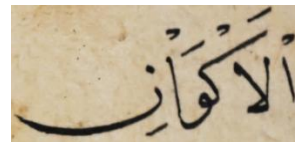 اْلَاَكْوَاْنِ